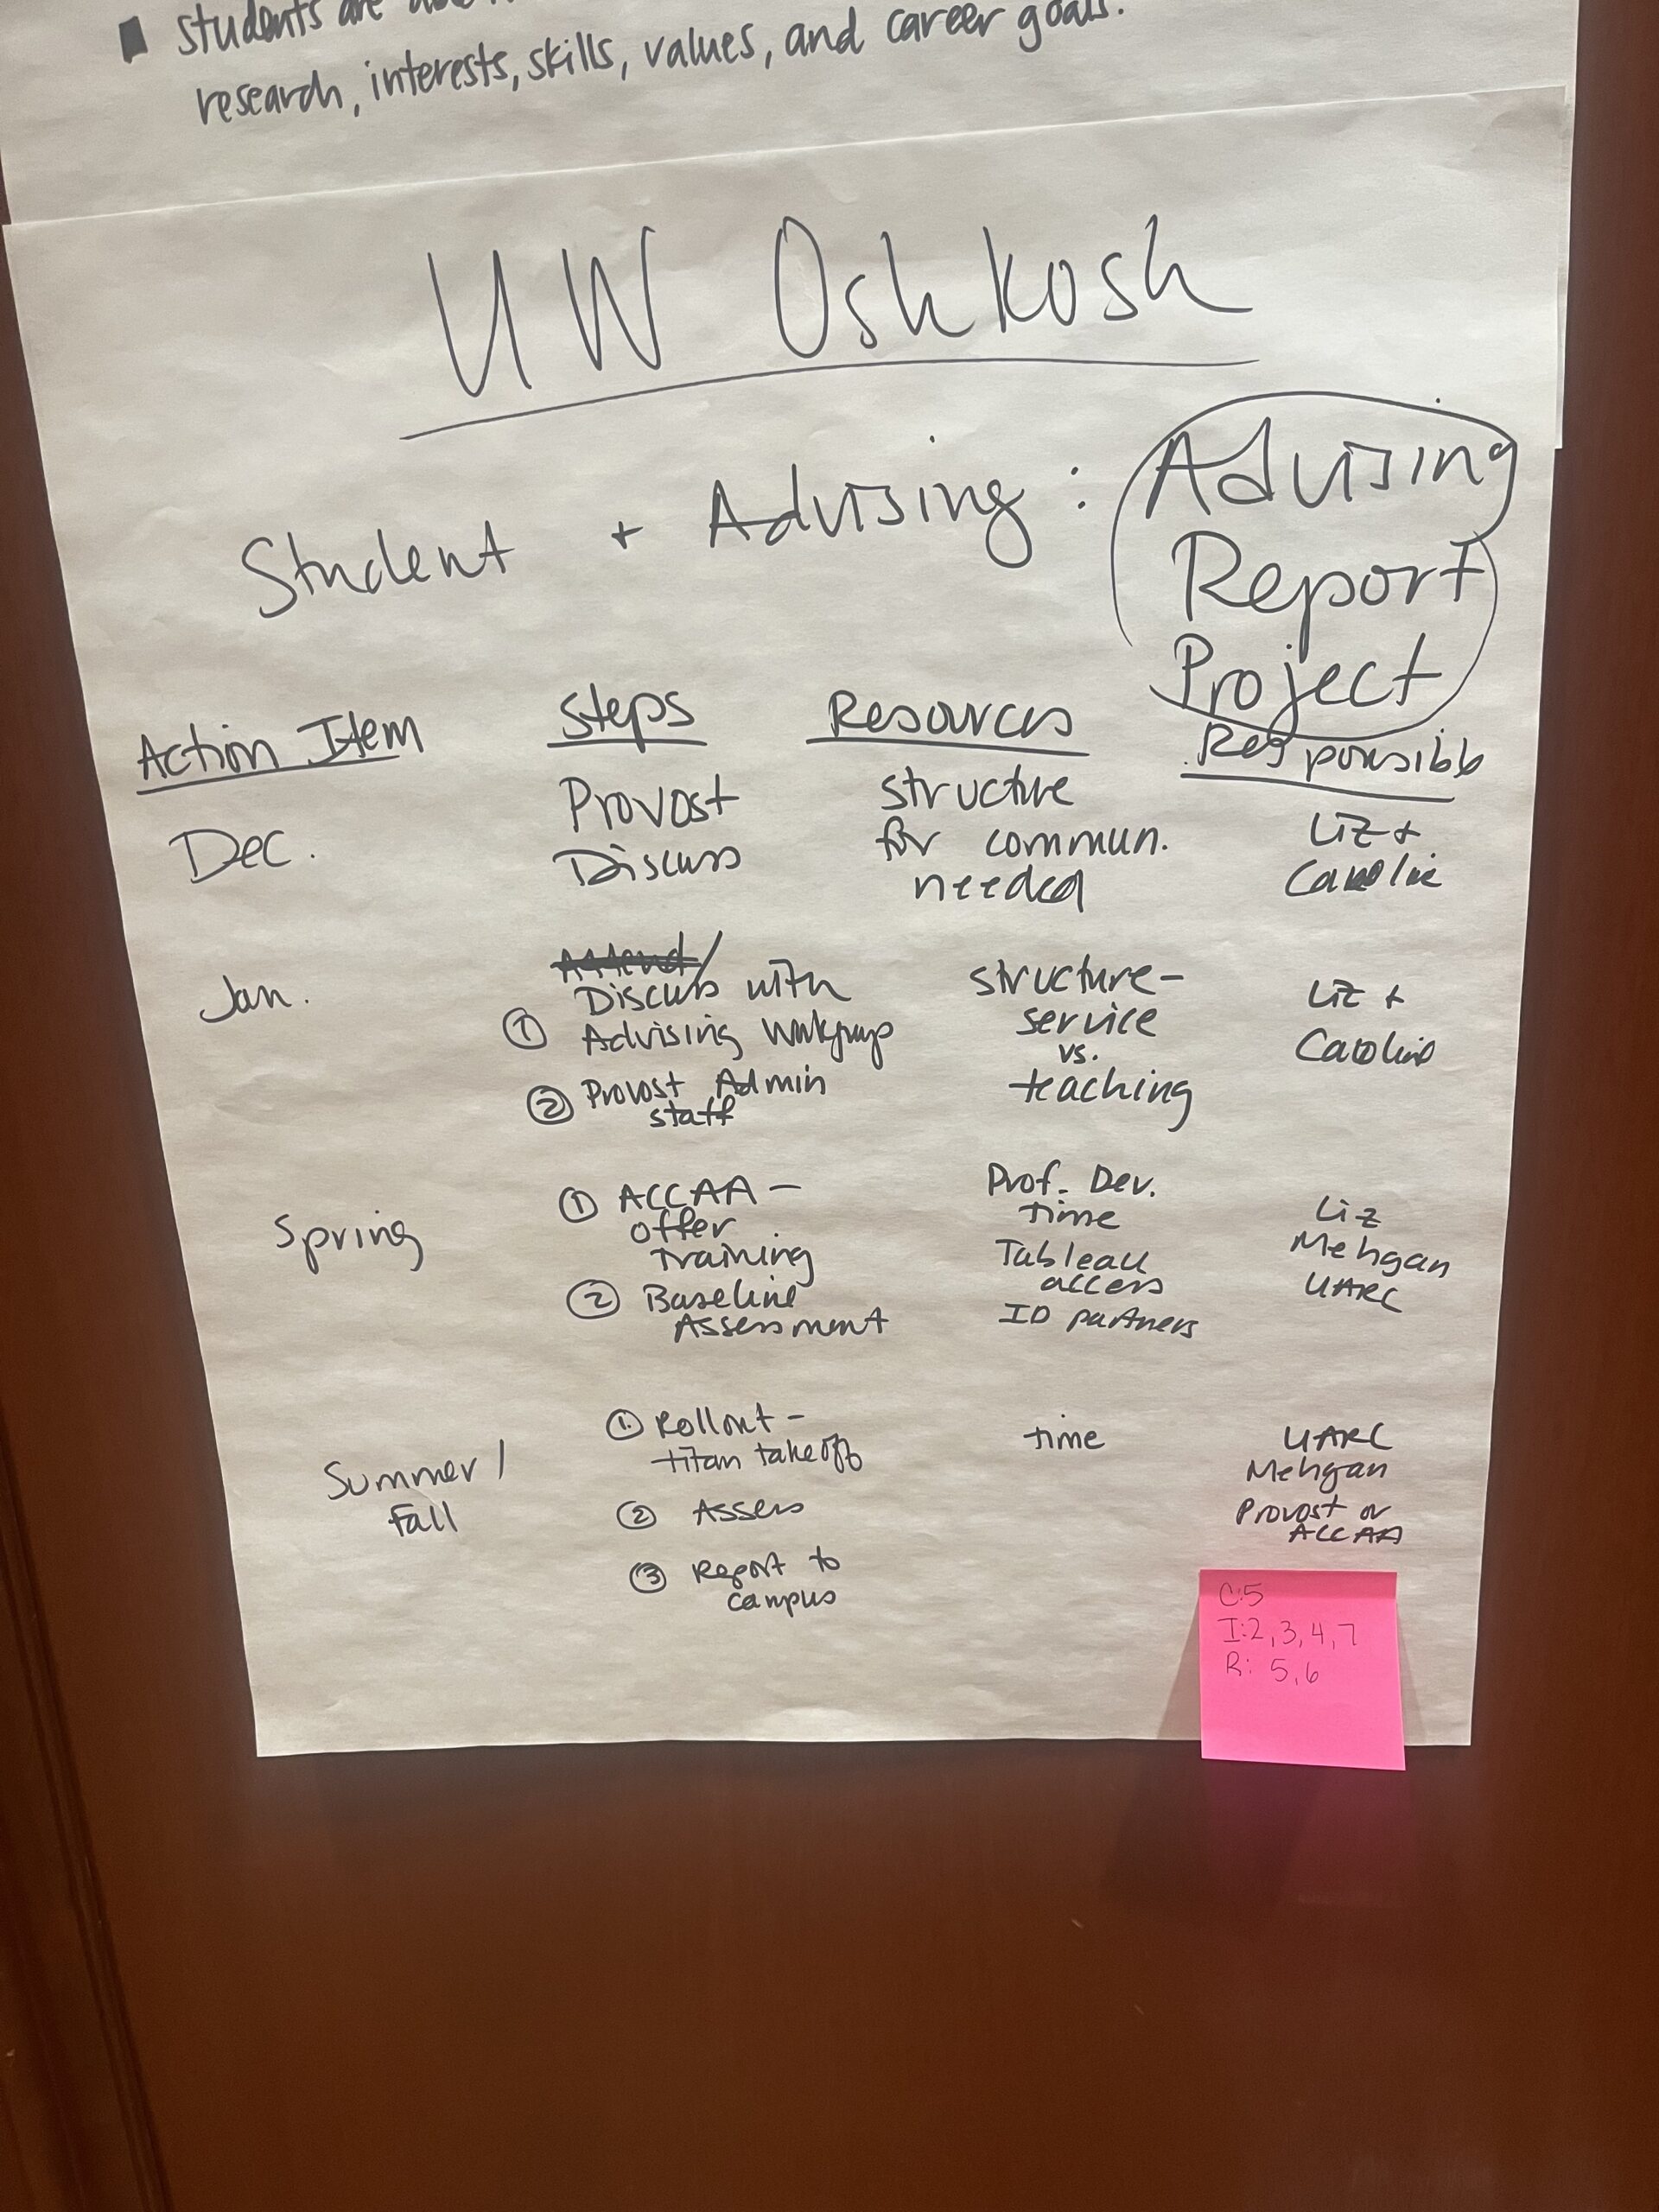 students are
research, interests, skills, values, and career goals.
UW Oshkosh
Student + Advising : Advising
Report
Project
Action Item Steps Resources Responsible
Dec. Provost structure Liz +
Discuss for commun. Caroline
needed
Jan. Attend/ structure- Liz +
Discuss with service Caroline
① Advising Workgroup vs.
② Provost Admin teaching
staff
Spring ① ACCAA - Prof. Dev. Liz
offer time Mehgan
training Tableau UARC
② Baseline access
Assessment ID partners
Summer/ ① Rollout - time UARC
Fall titan takeoff Mehgan
② Assess Provost or
ACCAA
③ Report to
campus
C:5
I:2,3,4,7
R: 5,6